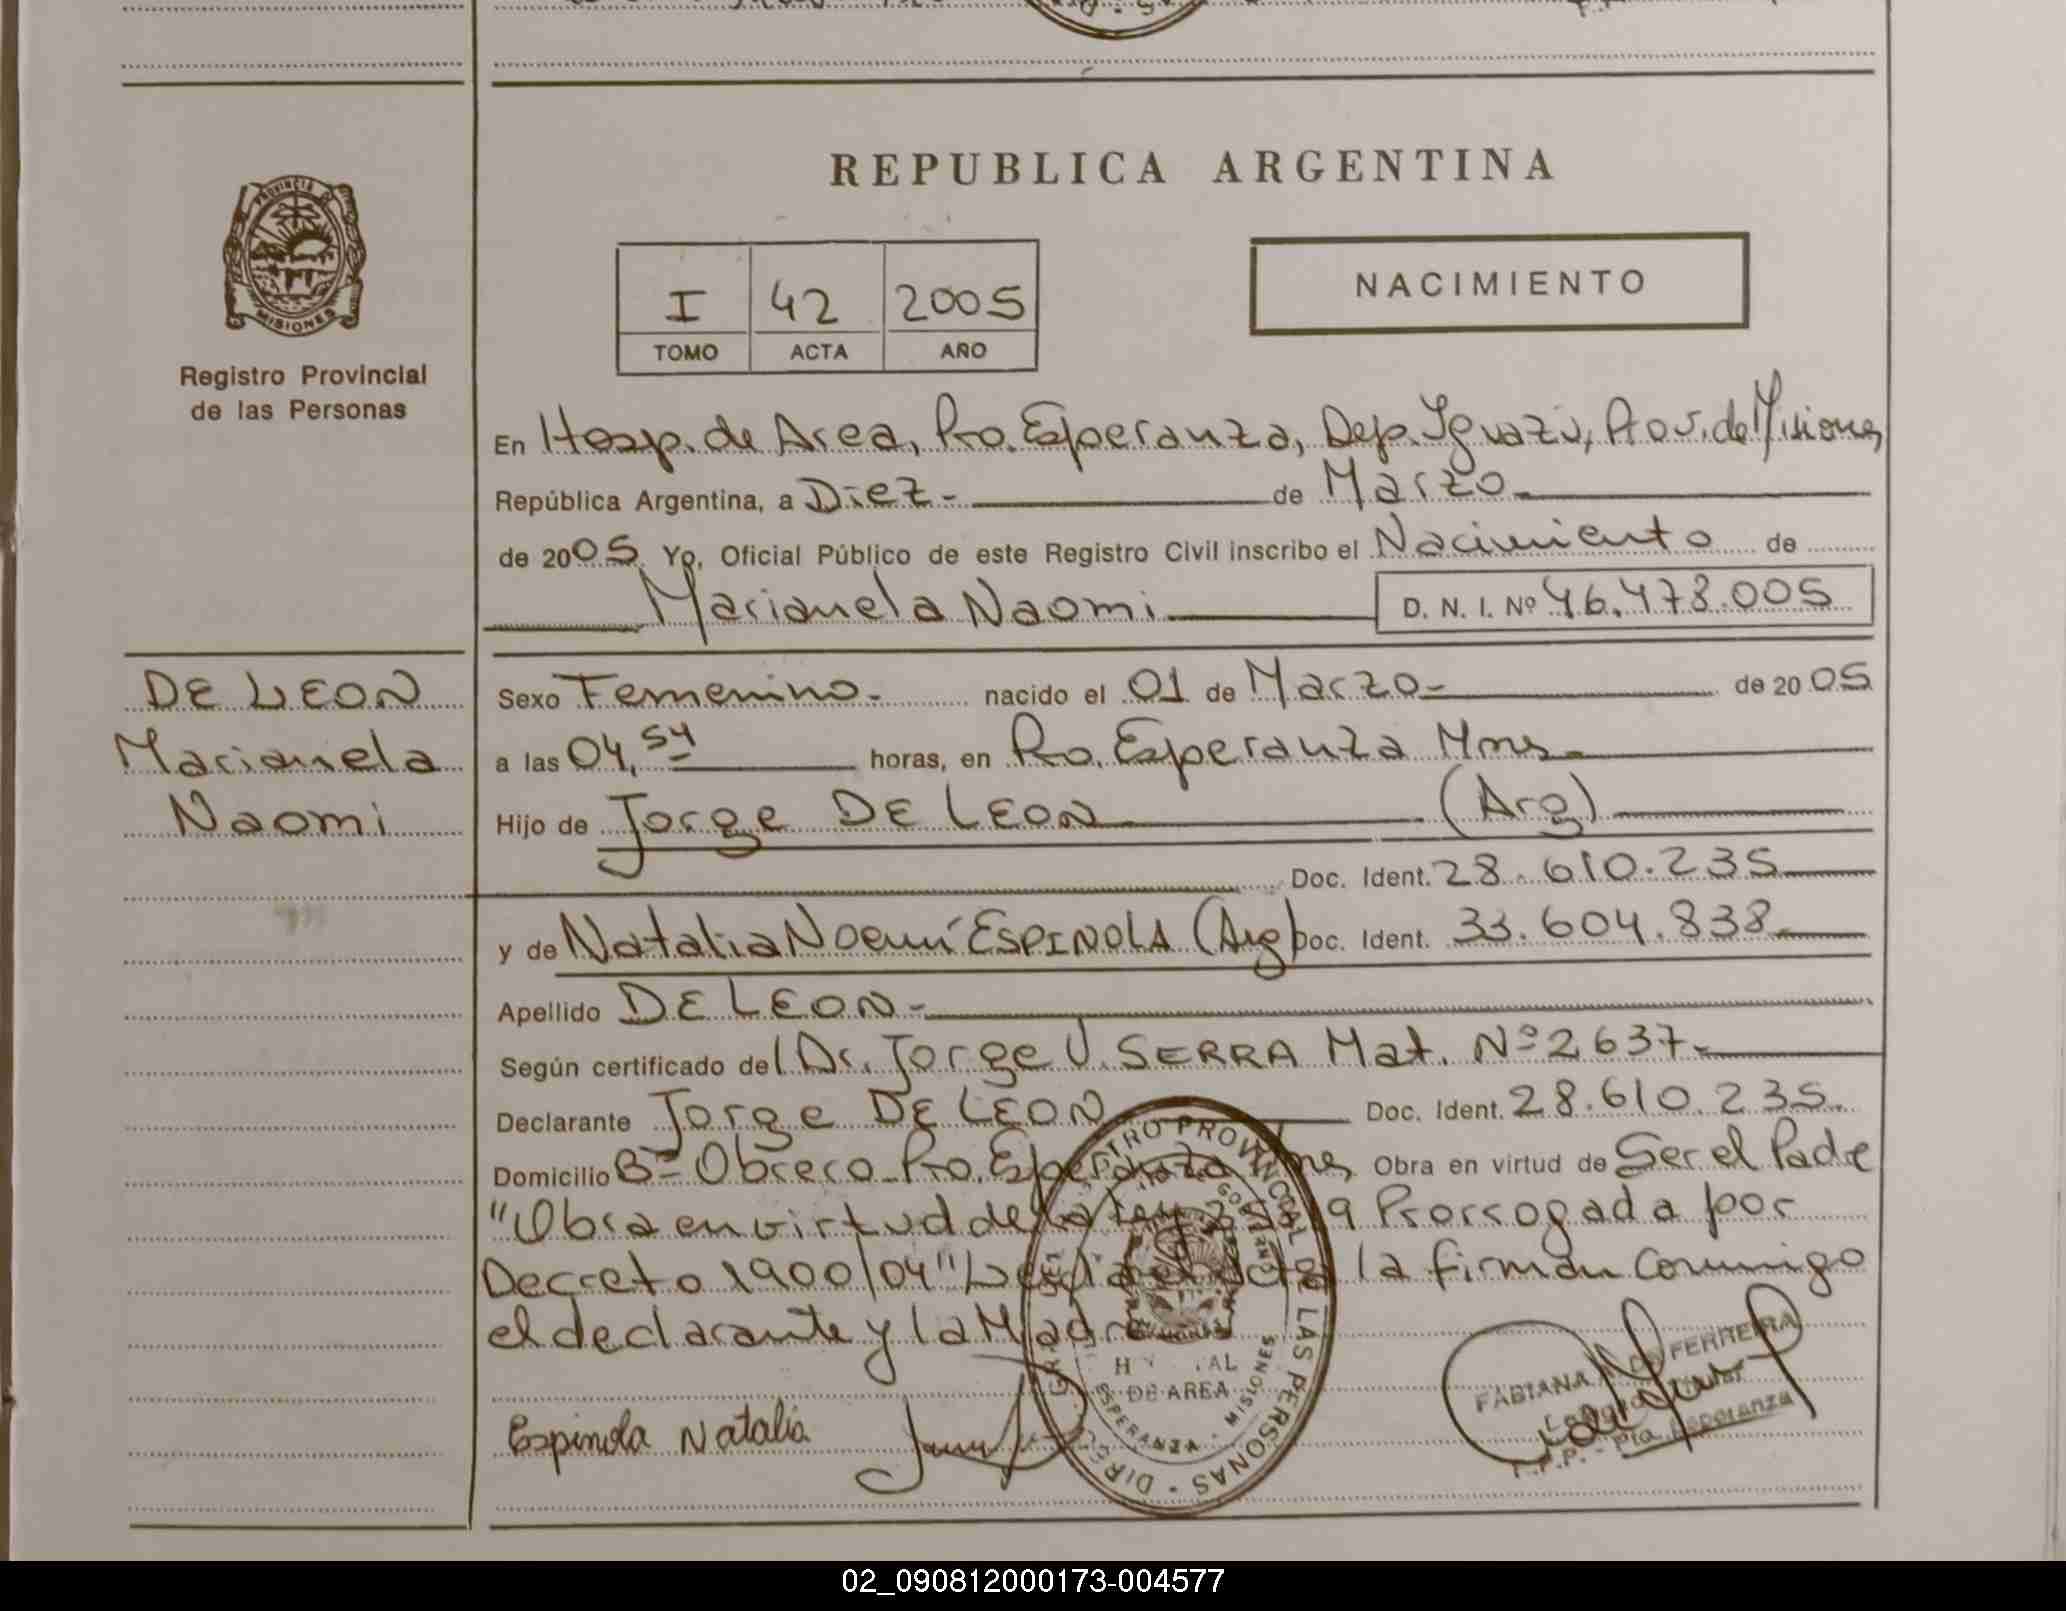 REPUBLICA ARGENTINA
PROVINCIA DE
MISIONES
Registro Provincial
de las Personas
I 42 2005
TOMO ACTA AÑO
NACIMIENTO
En Hosp. de Area, Pto. Esperanza, Dep. Iguazú, Prov. de Misiones
República Argentina, a Diez.- de Marzo
de 2005. Yo, Oficial Público de este Registro Civil inscribo el Nacimiento de
Marianela Naomi D. N. I. Nº 46.478.005
DE LEON
Marianela
Naomi
Sexo Femenino.- nacido el 01 de Marzo- de 2005
a las 04,54 horas, en Pto. Esperanza Mnes.
Hijo de Jorge DE LEON (Arg)
Doc. Ident. 28.610.235
y de Natalia Noemí ESPINOLA (Arg) Doc. Ident. 33.604.838
Apellido DE LEON-
Según certificado del Dr. Jorge V. SERRA Mat. Nº 2637-
Declarante Jorge DE LEON Doc. Ident. 28.610.235.
Domicilio Bº Obrero Pto. Esperanza Mnes, Obra en virtud de Ser el Padre
"Obra en virtud de la Ley Prorrogada por
Decreto 1900/04" Leída el acta la firman conmigo
el declarante y la Madre
Espinola Natalia
DE AREA
ESPERANZA - MISIONES
REGISTRO PROVINCIAL DE LAS PERSONAS
FABIANA DE FERREIRA
Pto. Esperanza
02_090812000173-004577